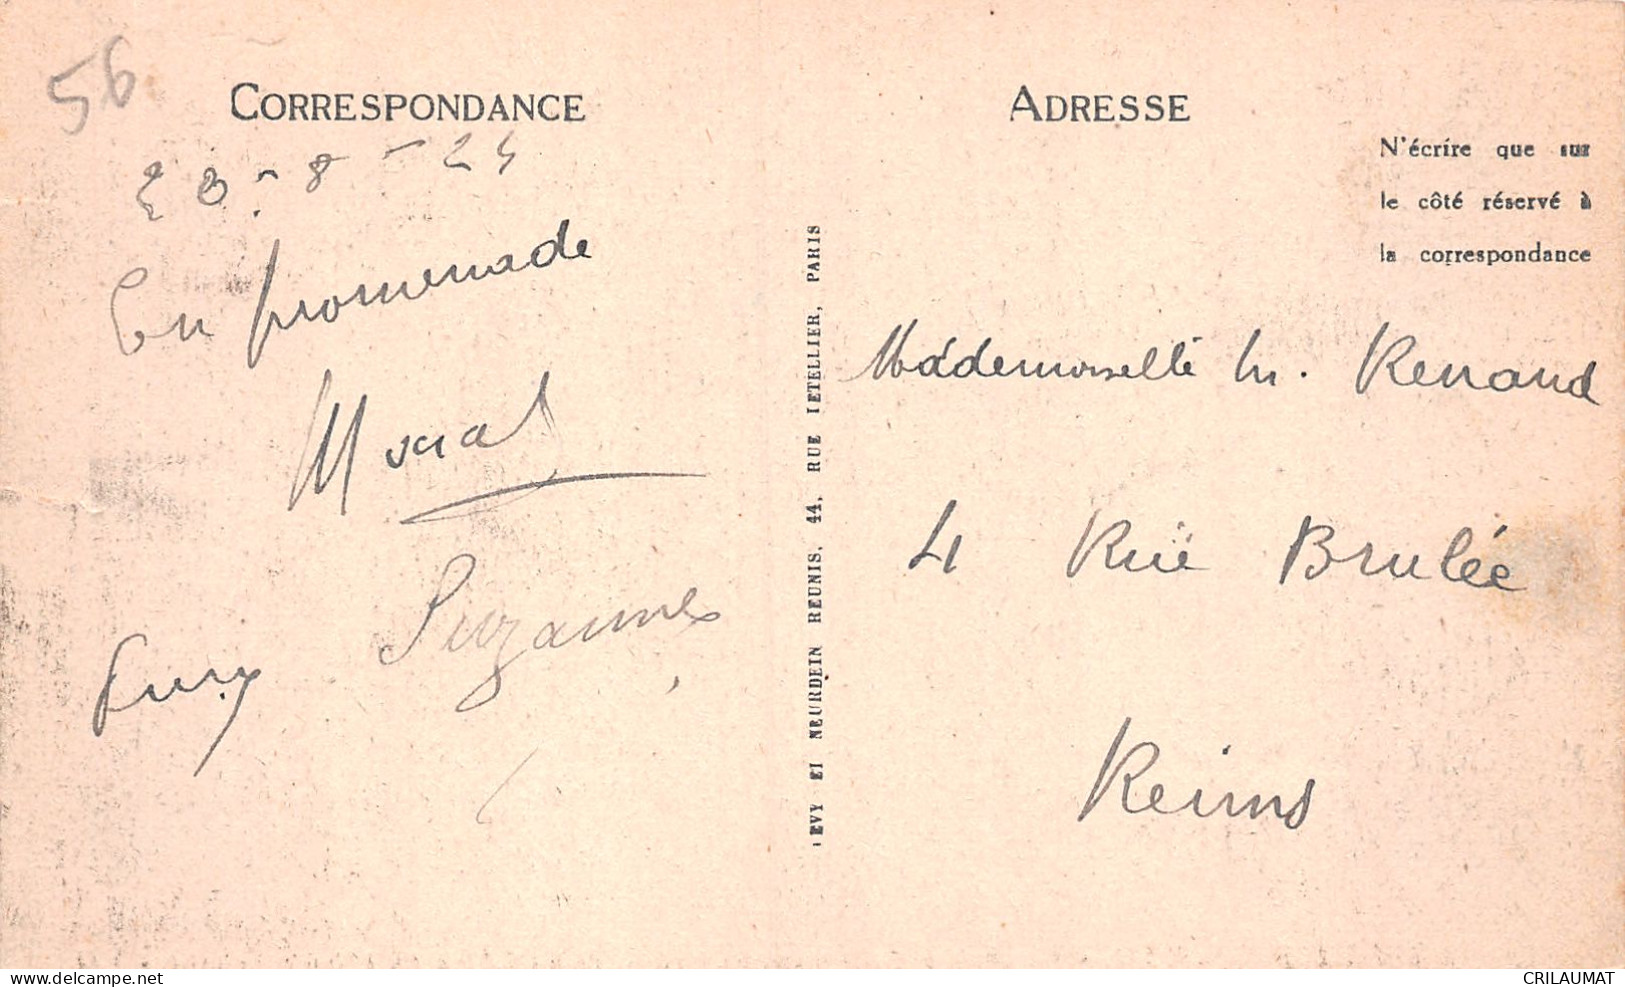 56
CORRESPONDANCE
En promenade
Suzanne
LEVY ET NEURDEIN REUNIS, 44, RUE LETELLIER, PARIS
ADRESSE
N'écrire que sur
le côté réservé à
la correspondance
Mademoiselle M. Renaud
4 Rue Brulée
Reims
www.delcampe.net
CRILAUMAT